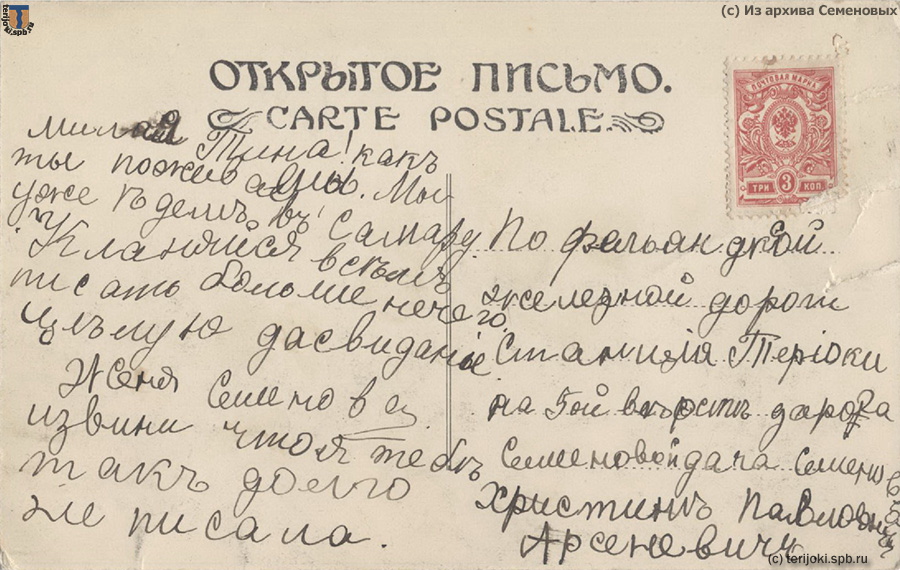 terijoki.spb.ru
(c) Из архива Семеновых
ОТКРЫТОЕ ПИСЬМО.
CARTE POSTALE.
ПОЧТОВАЯ МАРКА
ТРИ 3 КОП
милая Тина! какъ
ты поживаешь. Мы
уже ѣдемъ въ Самару.
Кланяйся всѣмъ
писать больше нечего.
Цѣлую дасвиданіе
Женя Семенова
извини что я тебѣ
такъ долго
не писала.
По
железной дороги
Станиція Теріоки
на 5ой вѣрстѣ дарога
Семеновой дача Семенова
Христинѣ Павловну
Арсеневичу
(c) terijoki.spb.ru